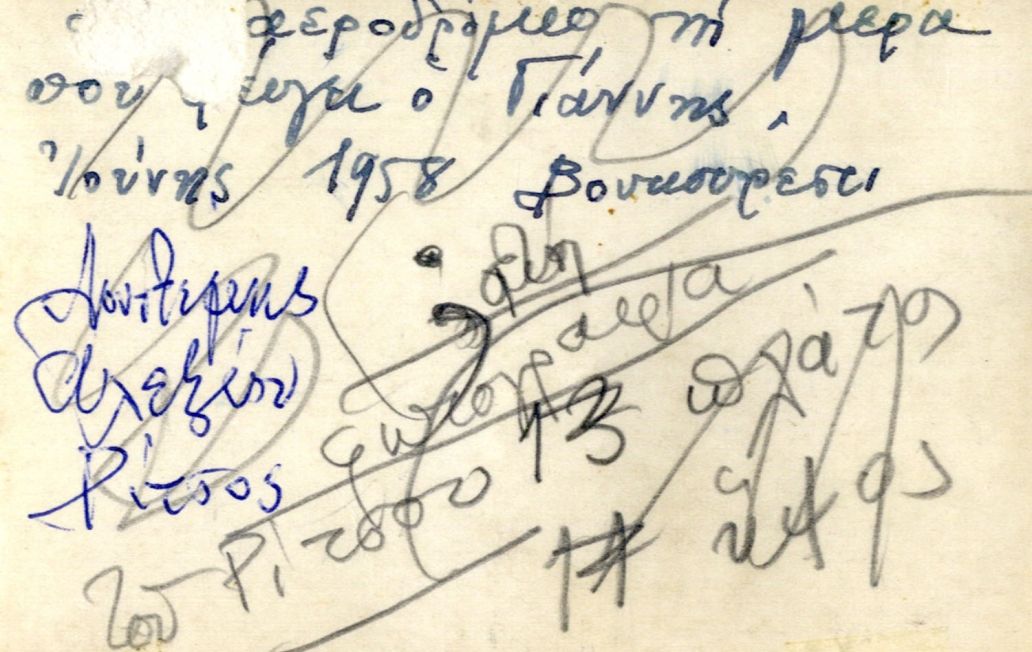 αεροδρόμιο τή μερα
που ὁ Γιάννης,
Ἰούνης 1958 Βουκουρέστι
Λουντέμης
Αλεξίου
Ρίτσος
όλη
φωτογραφία
του Ρίτσου
13 πλάτος
14 ύψος